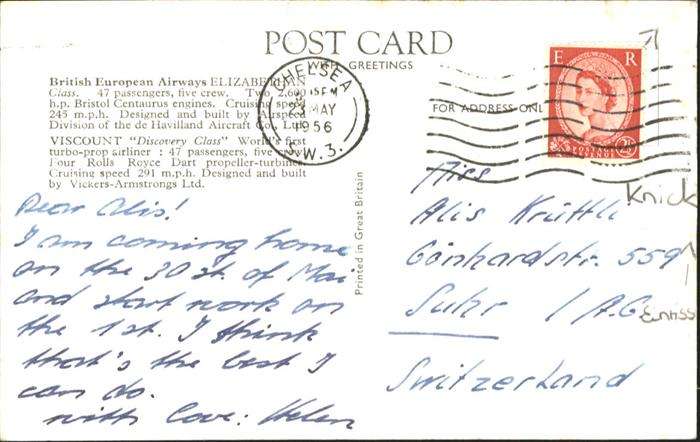 POST CARD
WITH GREETINGS
British European Airways ELIZABETHAN
Class. 47 passengers, five crew. Two 2,600
h.p. Bristol Centaurus engines. Cruising speed
245 m.p.h. Designed and built by Airspeed
Division of the de Havilland Aircraft Co., Ltd.
VISCOUNT "Discovery Class" World's first
turbo-prop airliner : 47 passengers, five crew.
Four Rolls Royce Dart propeller-turbines.
Cruising speed 291 m.p.h. Designed and built
by Vickers-Armstrongs Ltd.
CHELSEA
MAY
1956
S.W.3.
FOR ADDRESS ONL
E R
POSTAGE
2½
Printed in Great Britain
Dear Alis!
I am coming home
on the 30 st. of Mai
and start work on
the 1st. I think
that's the best I
can do.
with love: Helen
Miss
Alis Krüttli
Gönhardstr. 559
Suhr / A.G
Switzerland
Knick
Einriss